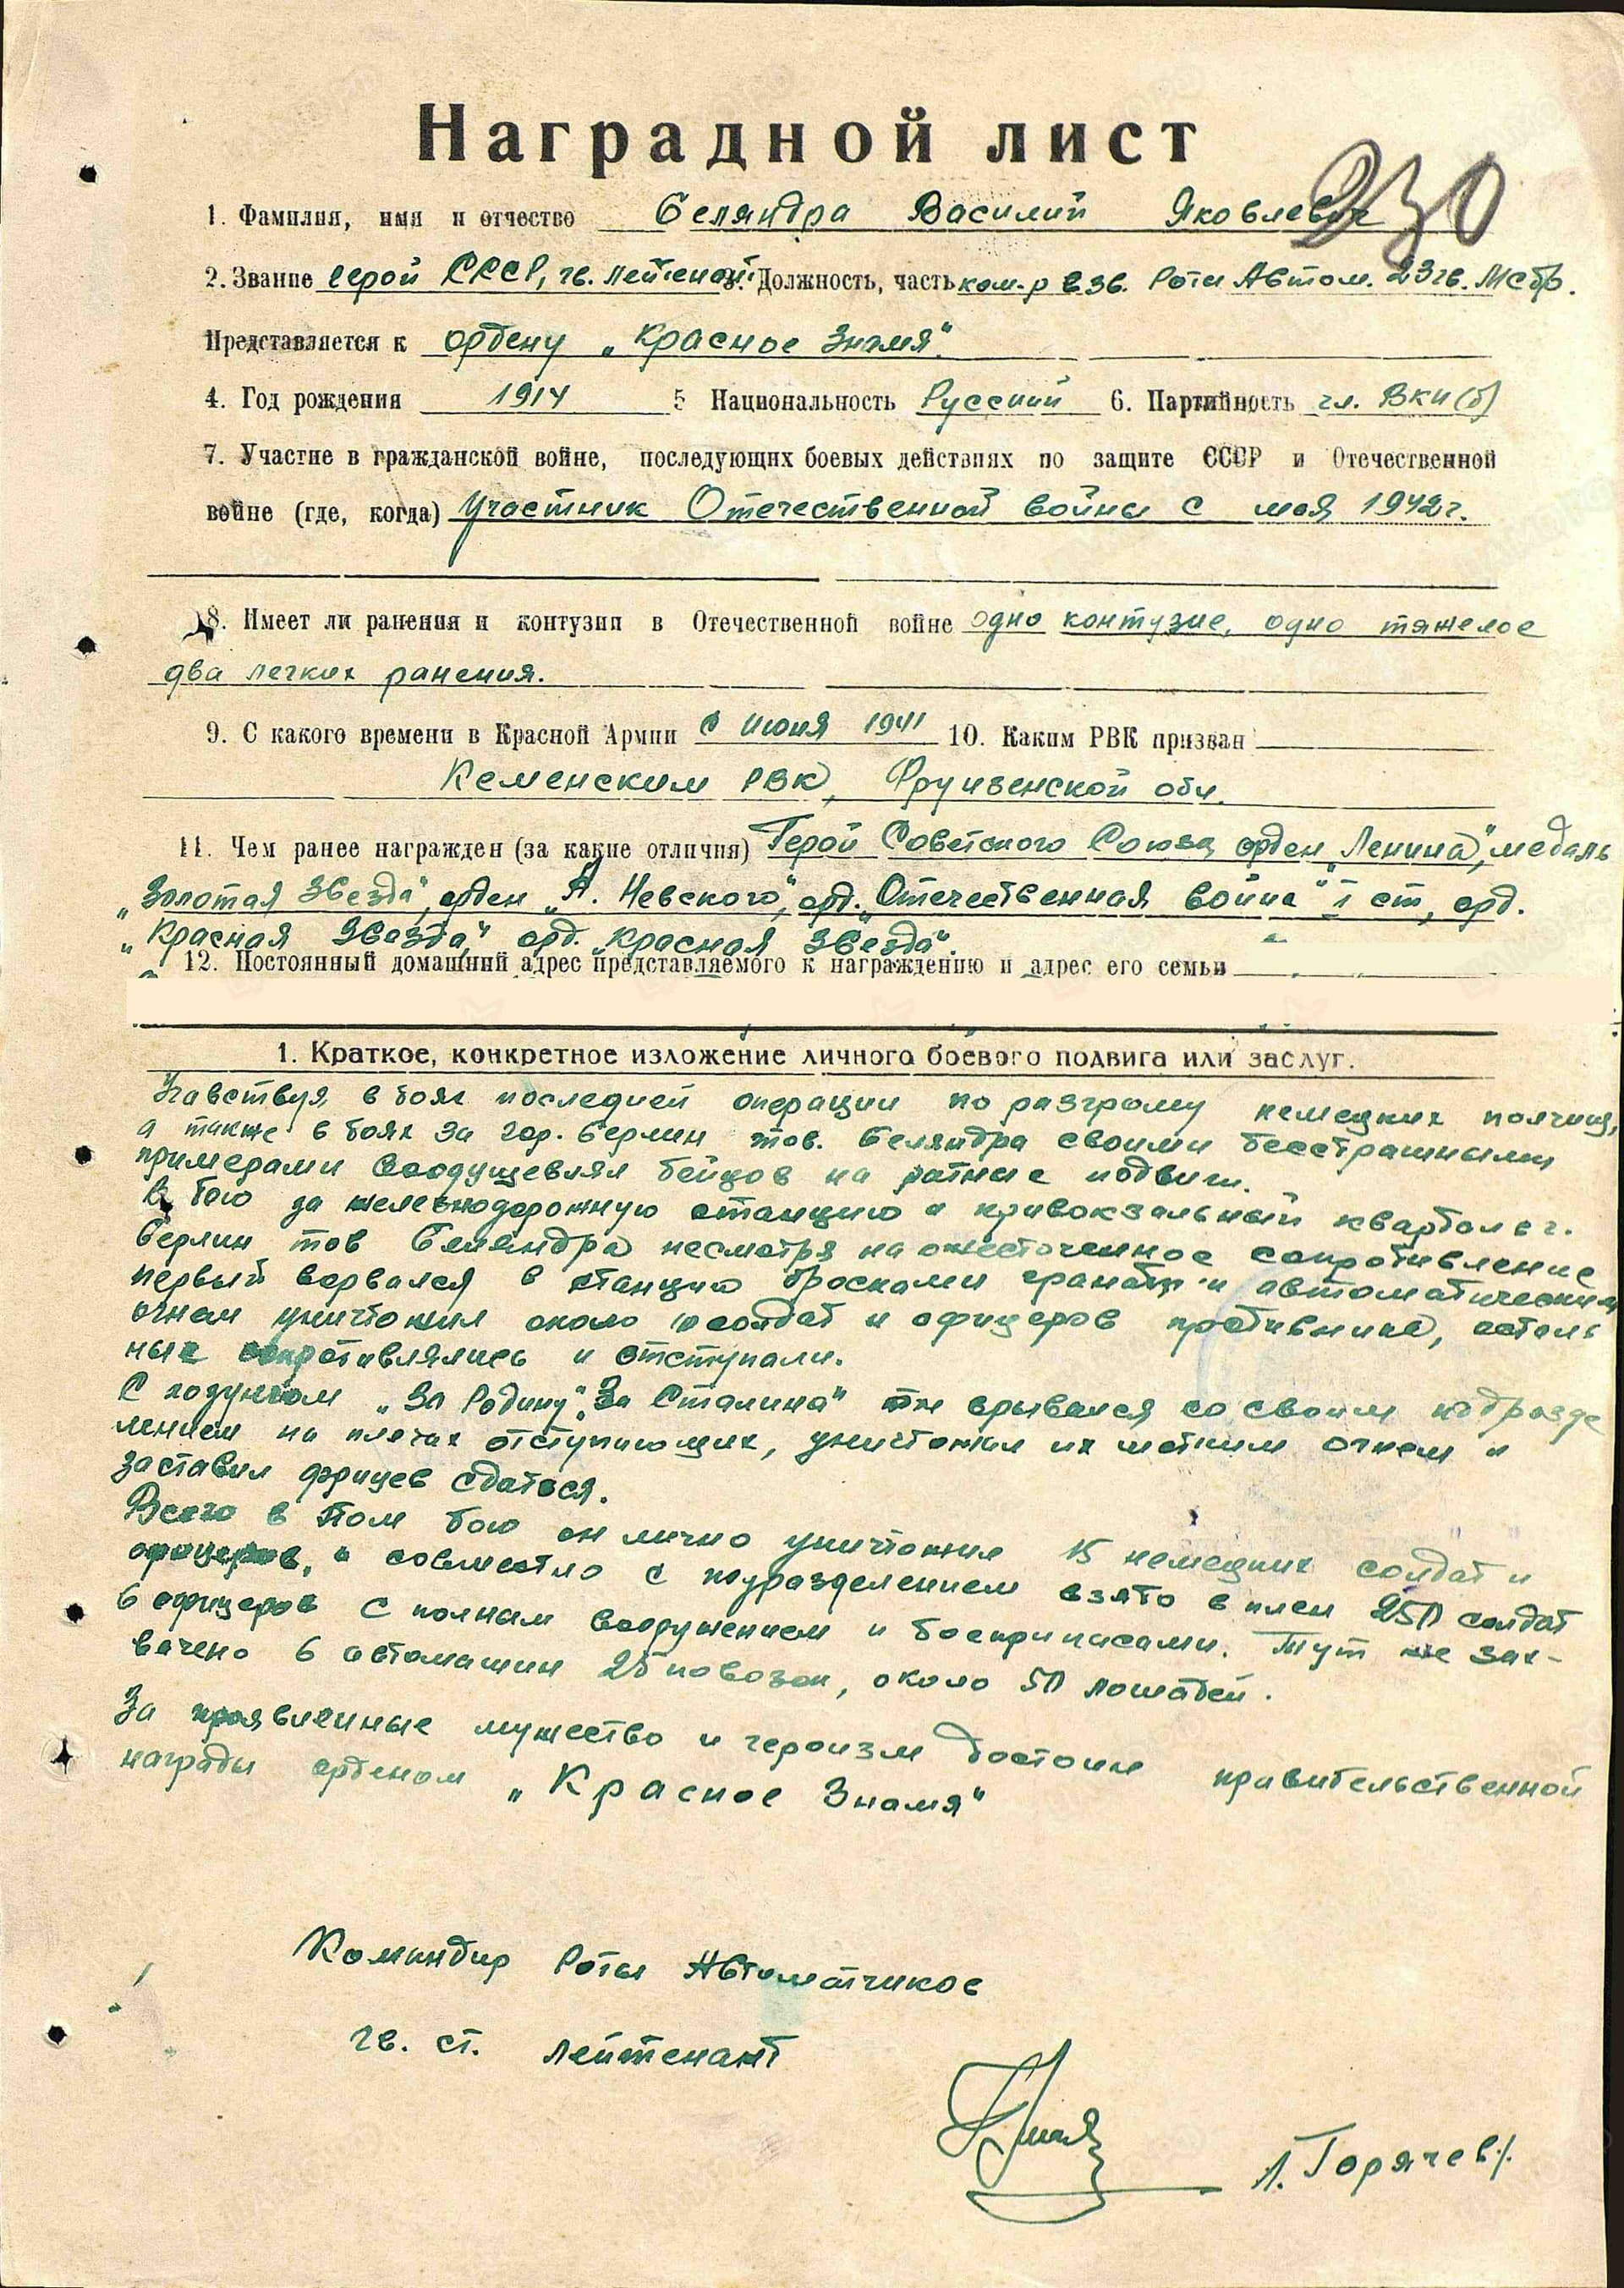 230
Наградной лист
1. Фамилия, имя и отчество Беляндра Василий Яковлевич
2. Звание Герой СССР, гв. лейтенант 3. Должность, часть ком-р взв. Роты Автом. 23 гв. Мсбр.
Представляется к ордену „Красное Знамя“
4. Год рождения 1914 5 Национальность Русский 6. Партийность чл. ВКП(б)
7. Участие в гражданской войне, последующих боевых действиях по защите СССР и Отечественной
войне (где, когда) Участник Отечественной войны с мая 1942 г.
8. Имеет ли ранения и контузии в Отечественной войне одно контузие, одно тяжелое
два легких ранения.
9. С какого времени в Красной Армии с июня 1941 10. Каким РВК призван
Кеменским РВК, Фрунзенской обл.
11. Чем ранее награжден (за какие отличия) Герой Советского Союза орден „Ленина“, медаль
„Золотая Звезда“, орден „А. Невского“, орд. „Отечественная война“ I ст, орд.
„Красная Звезда“, орд. „Красная Звезда“.
12. Постоянный домашний адрес представляемого к награждению и адрес его семьи
1. Краткое, конкретное изложение личного боевого подвига или заслуг.
Учавствуя в боях последней операции по разгрому немецких полчищ,
а также в боях за гор. Берлин тов. Беляндра своими бесстрашными
примерами воодушевлял бойцов на ратные подвиги.
В бою за железнодорожную станцию и привокзальный квартал г.
Берлин тов Беляндра несмотря на ожесточенное сопротивление
первый ворвался в станцию бросками гранаты и автоматическим
огнем уничтожил около 10 солдат и офицеров противника, осталь
ные сопротивлялись и отступали.
С лозунгом „За Родину“, „За Сталина“ он врывался со своим подразде
лением на плечах отступающих, уничтожил их метким огнем и
заставил фрицев сдаться.
Всего в этом бою он лично уничтожил 15 немецких солдат и
офицеров, и совместно с подразделением взято в плен 250 солдат
6 офицеров с полным вооружением и боеприпасами. Тут же зах-
вачено 6 автомашин 25 повозок, около 50 лошадей.
За проявленные мужество и героизм достоин правительственной
награды орденом „Красное Знамя“
Командир Роты Автоматчиков
гв. ст. лейтенант
Л. Горячев/.